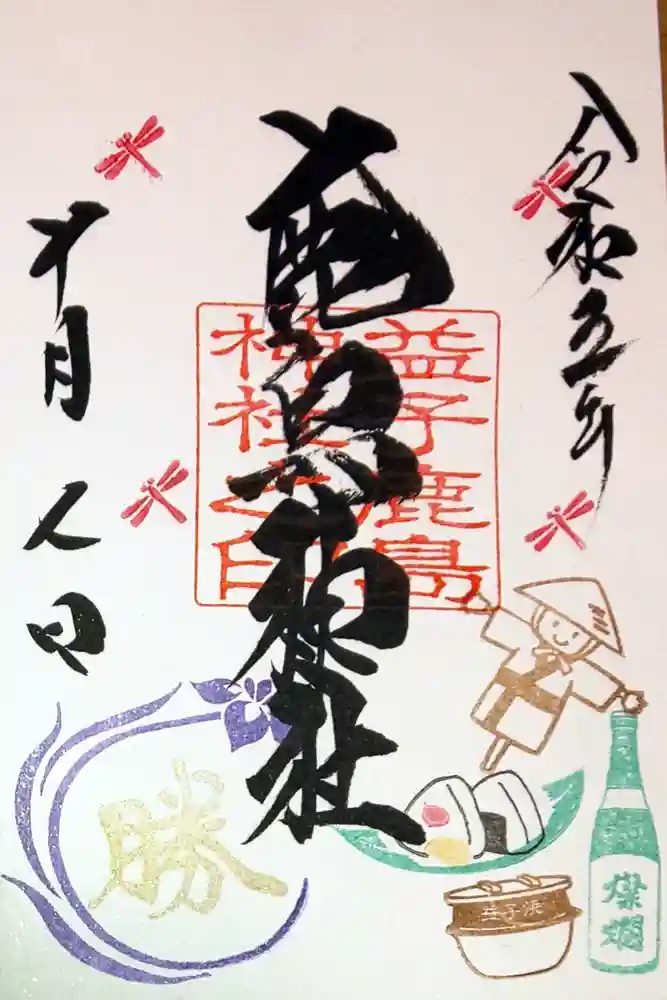 令和五年
鹿島神社
益子鹿島
神社之印
十月
八日
勝
益子焼
燦爛